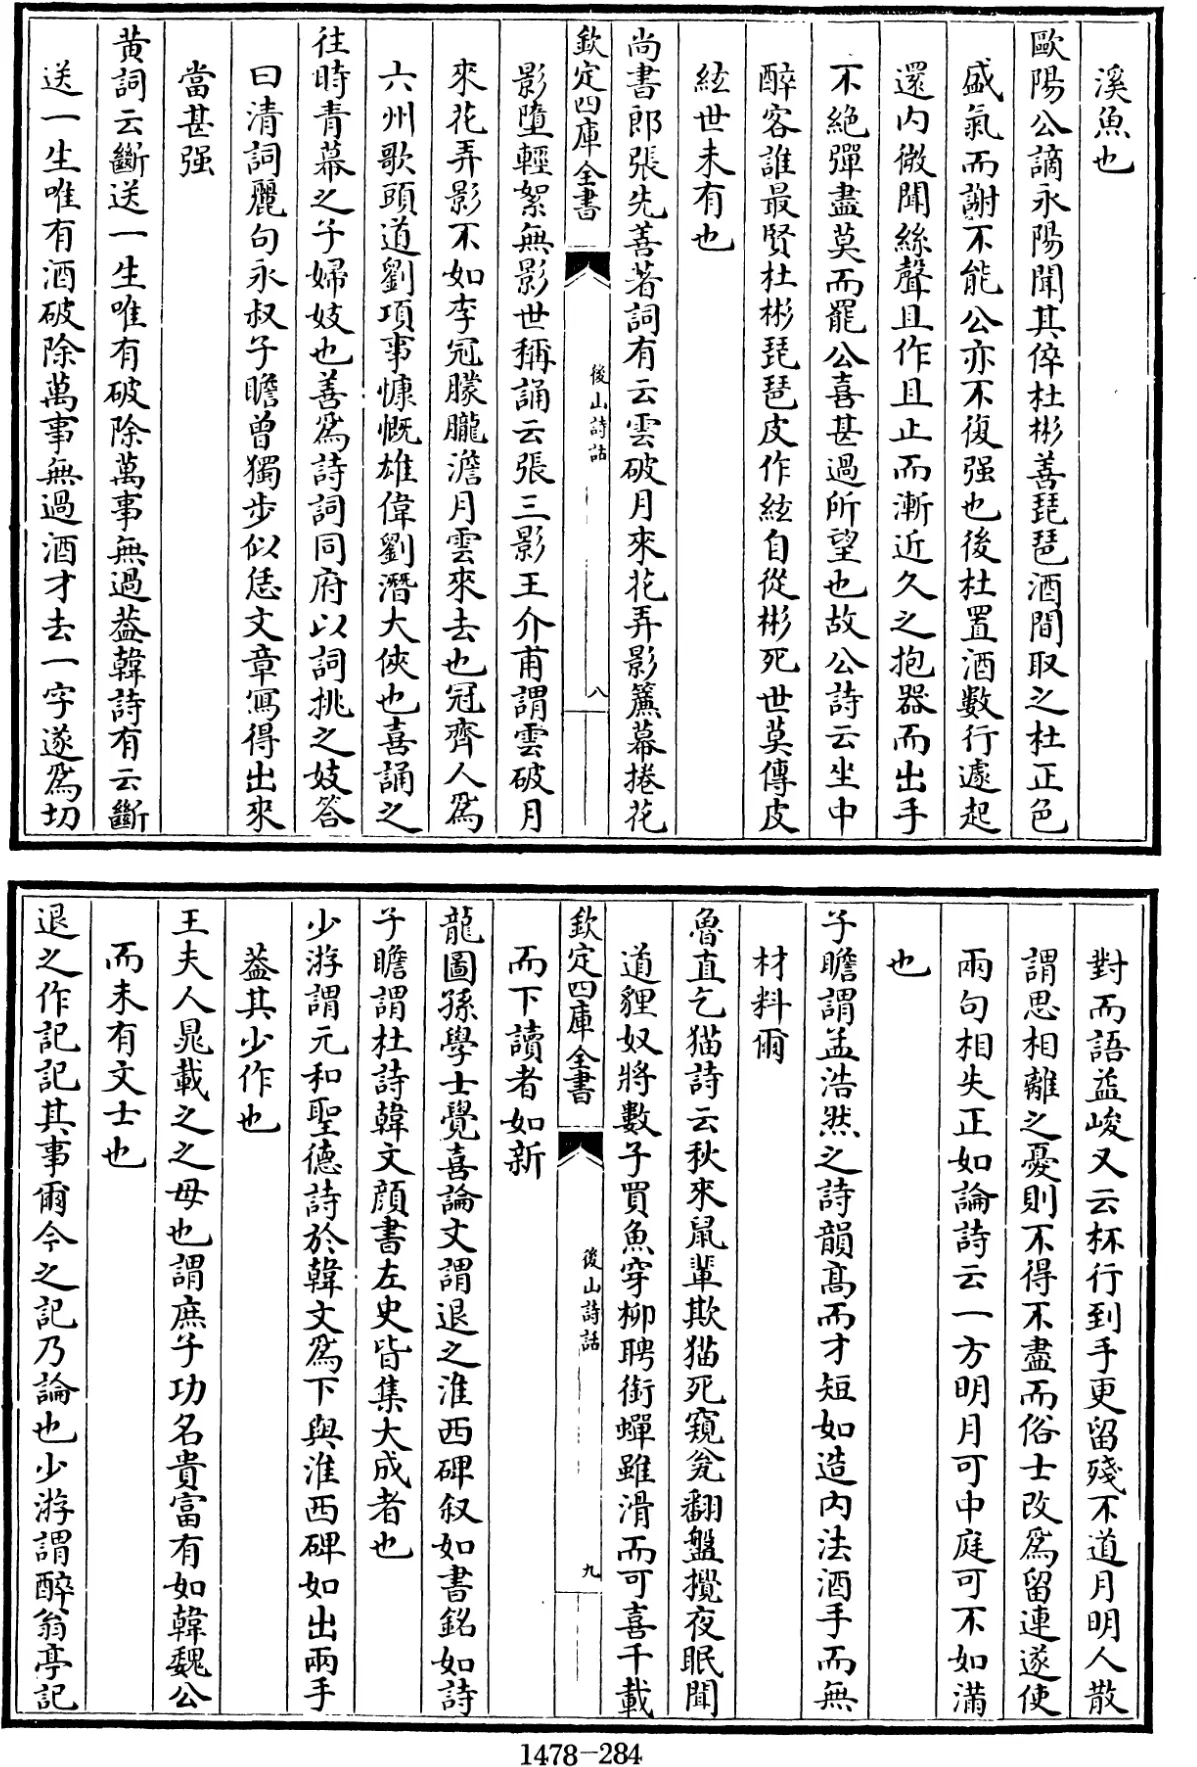 溪魚也
歐陽公謫永陽聞其倅杜彬善琵琶酒間取之杜正色
盛氣而謝不能公亦不復强也後杜置酒數行遽起
還内微聞絲聲且作且止而漸近久之抱器而出手
不絶彈盡莫而罷公喜甚過所望也故公詩云坐中
醉客誰最賢杜彬琵琶皮作絃自從彬死世莫傳皮
絃世未有也
尚書郎張先善著詞有云雲破月來花弄影簾幕捲花
欽定四庫全書
後山詩話
八
影墮輕絮無影世稱誦云張三影王介甫謂雲破月
來花弄影不如李冠朦朧澹月雲來去也冠齊人爲
六州歌頭道劉項事慷慨雄偉劉潛大俠也喜誦之
往時青幕之子婦妓也善爲詩詞同府以詞挑之妓答
曰清詞麗句永叔子瞻曾獨步似恁文章寫得出來
當甚强
黄詞云斷送一生唯有破除萬事無過葢韓詩有云斷
送一生唯有酒破除萬事無過酒才去一字遂爲切
對而語益峻又云杯行到手更留殘不道月明人散
謂思相離之憂則不得不盡而俗士改爲留連遂使
兩句相失正如論詩云一方明月可中庭可不如滿
也
子瞻謂孟浩然之詩韻高而才短如造内法酒手而無
材料爾
魯直乞猫詩云秋來鼠輩欺猫死窺瓮翻盤攪夜眠聞
道貍奴將數子買魚穿柳聘銜蟬雖滑而可喜千載
欽定四庫全書
後山詩話
九
而下讀者如新
龍圖孫學士覺喜論文謂退之淮西碑叙如書銘如詩
子瞻謂杜詩韓文顔書左史皆集大成者也
少游謂元和聖德詩於韓文爲下與淮西碑如出兩手
葢其少作也
王夫人晁載之之母也謂庶子功名貴富有如韓魏公
而未有文士也
退之作記記其事爾今之記乃論也少游謂醉翁亭記
1478-284